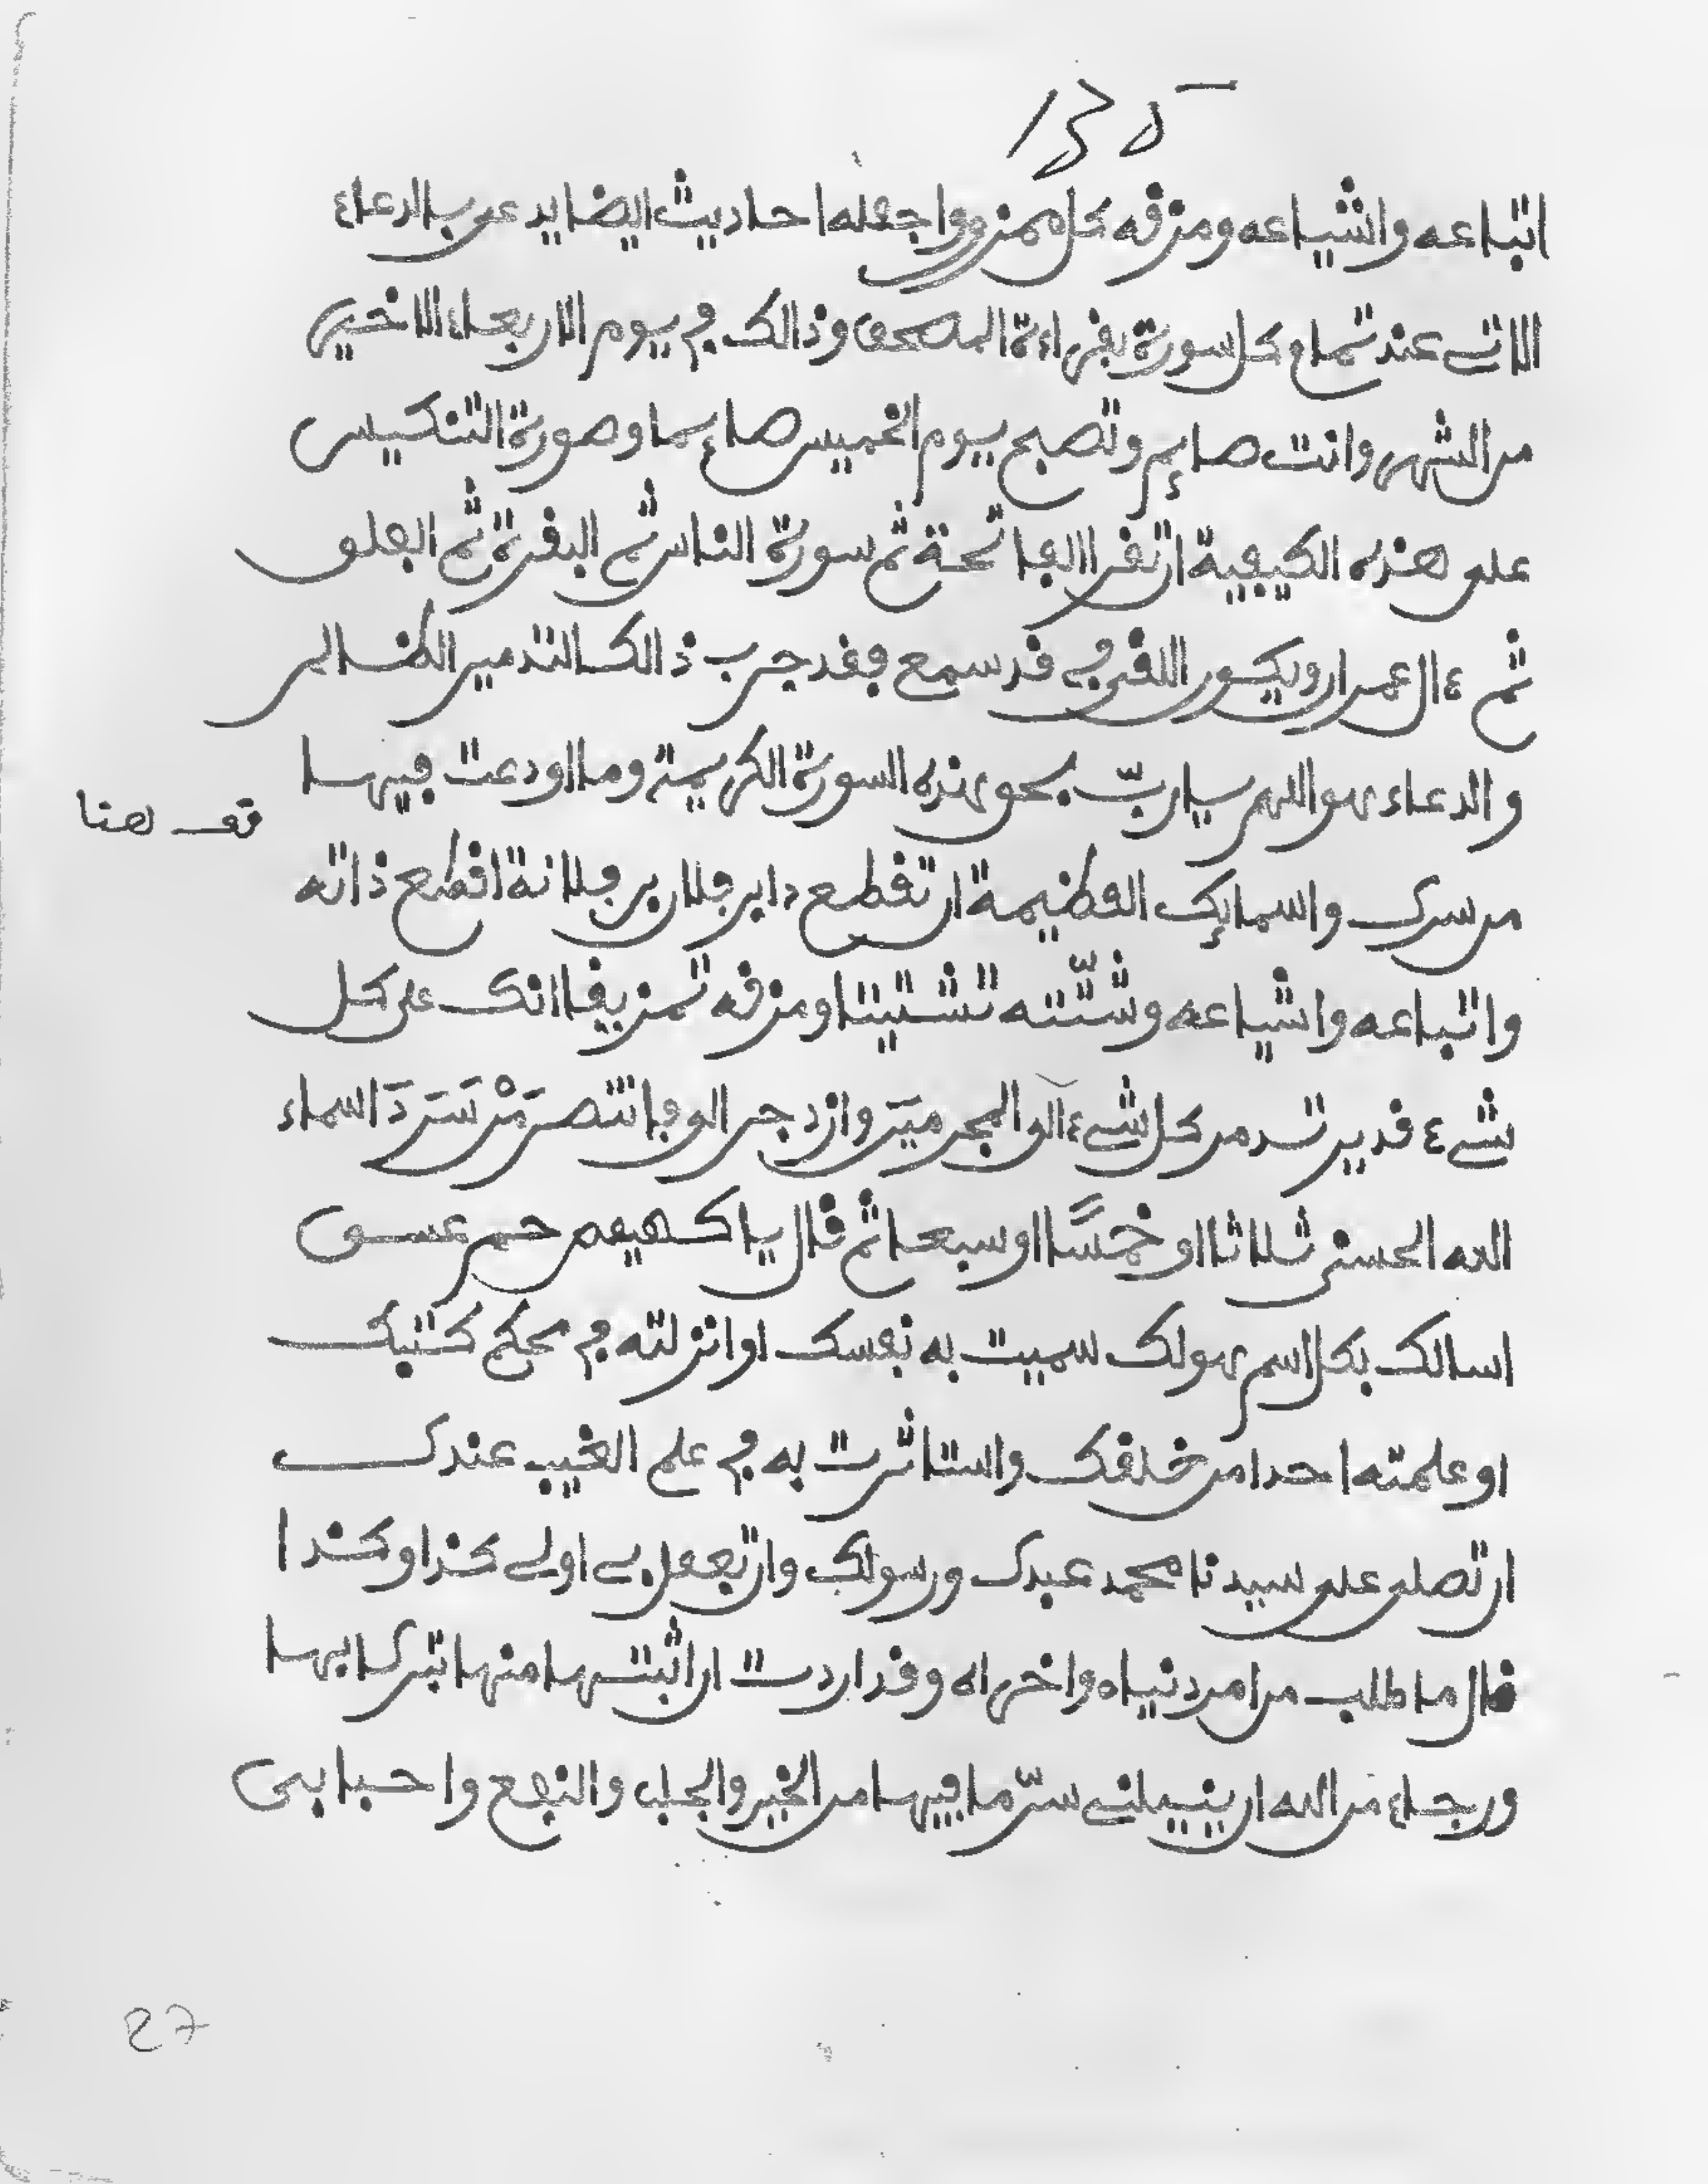 اتباعه واشياعه ومزقه كل ممزق واجعله احاديث ايضا يدعى بالدعاء
الاتي عند تمام كل سورة بقراءة المصحف وذالك في يوم الاربعاء الاخير
من الشهر وانت صايم وتصبح يوم الخميس صايما وصورة التنكيس
على هذه الكيفية ان تقرا الفاتحة ثم سورة الناس ثم البقرة ثم الفلق
ثم ءال عمران ويكون اللقى في قد سمع فقد جرب ذالك لتدمير الظالم
والدعاء هو اللهم يارب بحق هذه السورة الكريمة وما اودعت فيها
قف هنا
من سرك واسمايك العظيمة ان تقطع دابر فلان بن فلانة اقطع ذاته
واتباعه واشياعه وشتّته تشتيتا ومزقه تمزيقا انك على كل
شيء قدير تدمر كل شيء الى المجرمين وازدجر الى فانتصر مَنْ سَرَدَ اسماء
الله الحسنى ثلاثا او خمسًا او سبعا ثم قال يا كهيعص حم عسق
اسالك بكل اسم هو لك سميت به نفسك او انزلته في محكم كتبك
او علمته احدا من خلقك واستاثرت به في علم الغيب عندك
ان تصلي على سيدنا محمد عبدك ورسولك وان تفعل بي او لي كذا وكذا
قال ما طلب من امر دنياه واخراه وقد اردت ان اثبتها منها تبركا بها
ورجاء من الله ان ينيلني سرّ ما فيها من الخير والجلب والنفع واحبابى
27